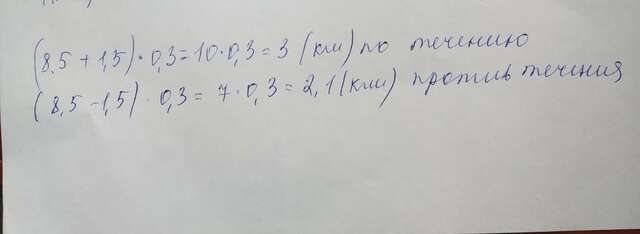 (8,5 + 1,5) · 0,3 = 10 · 0,3 = 3 (км) по течению
(8,5 - 1,5) · 0,3 = 7 · 0,3 = 2,1 (км) против течения